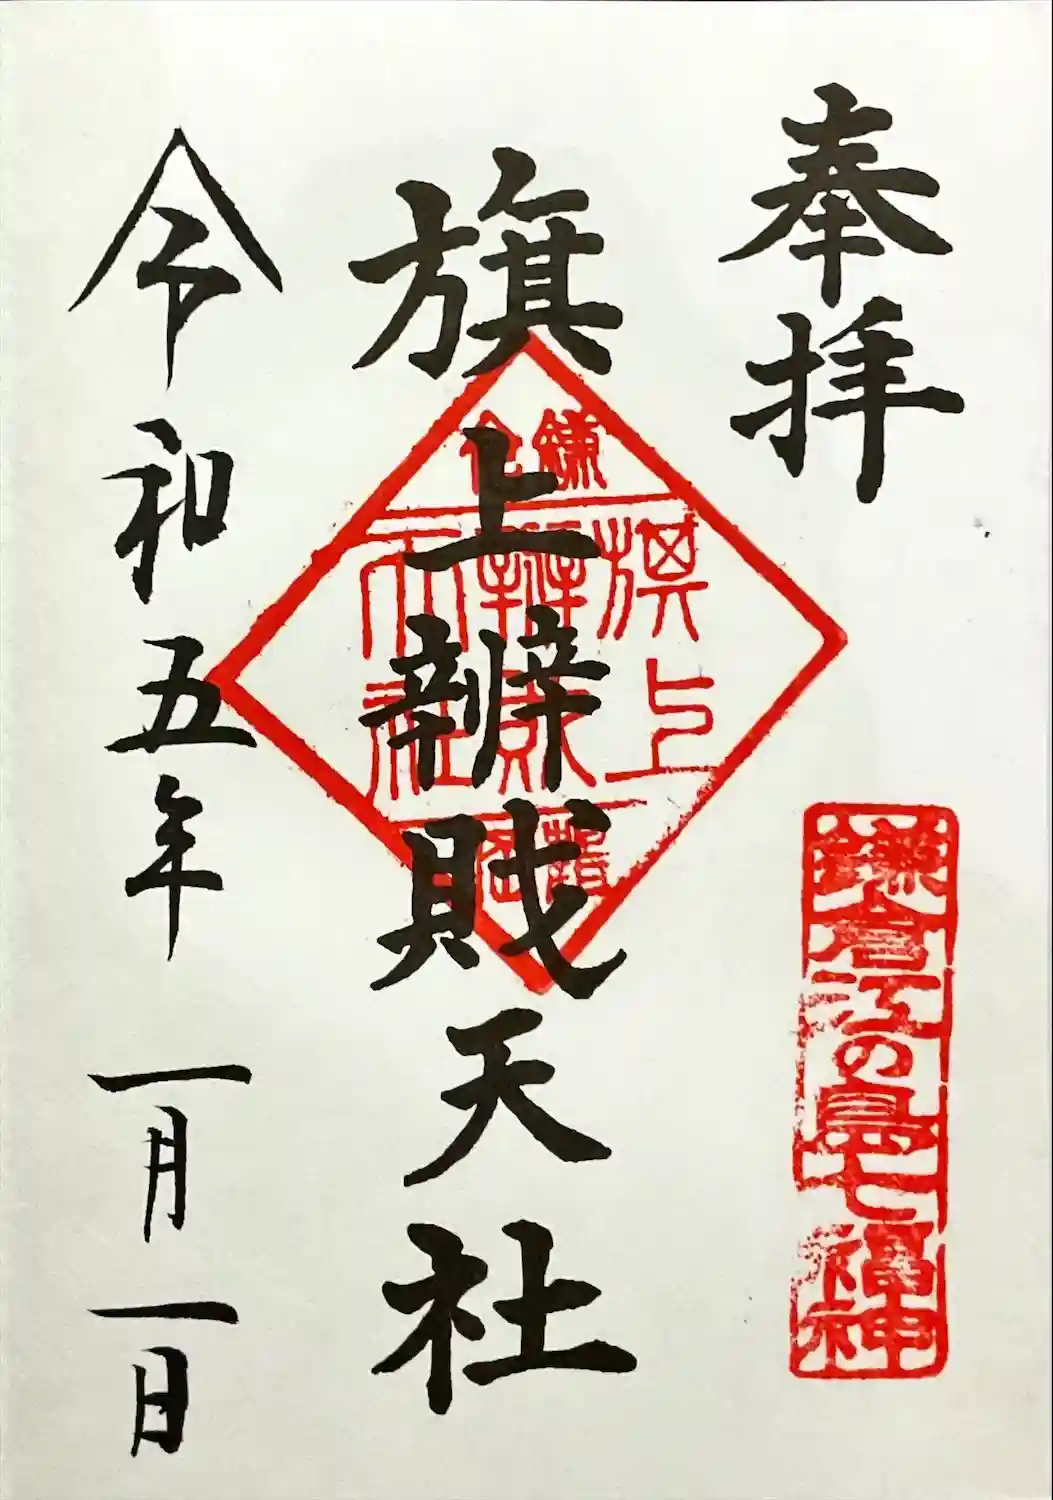 奉拝
鎌倉江の島七福神
旗上辨財天社
鎌倉
旗上
辨財
天社
令和五年 一月一日